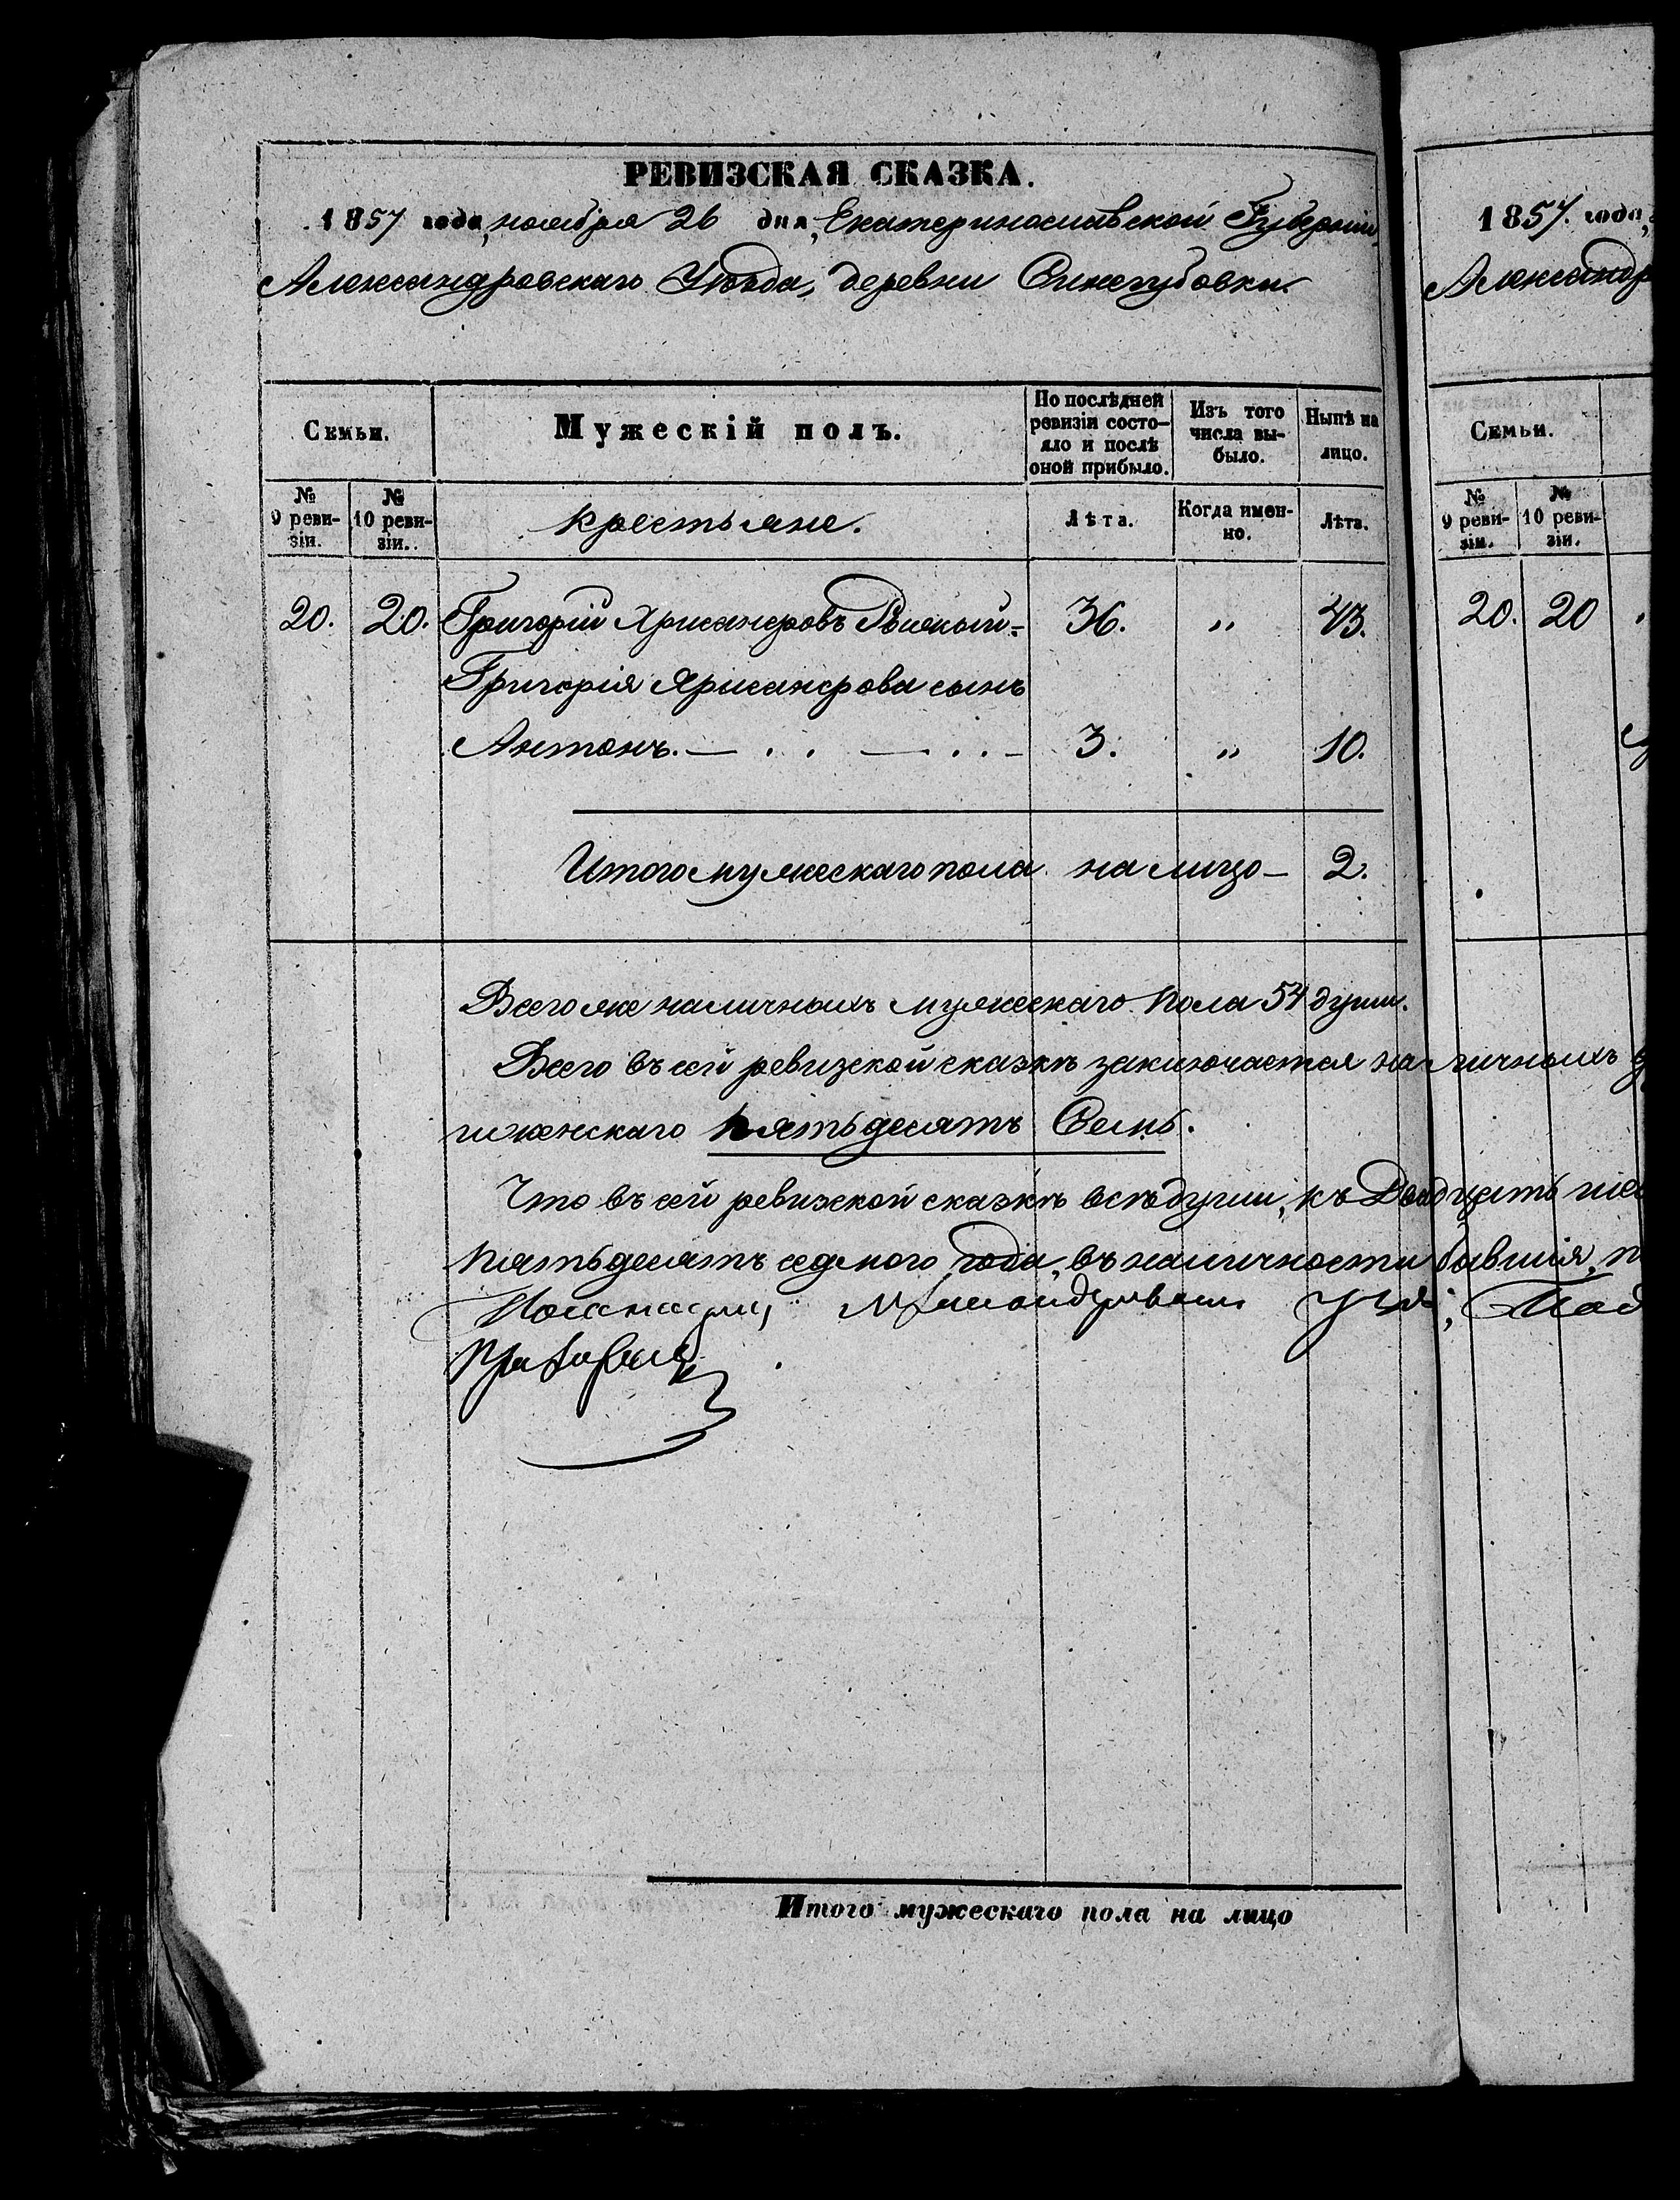 РЕВИЗСКАЯ СКАЗКА.
1857 года, ноября 26 дня, Екатеринославской Губерніи,
Александровскаго Уѣзда, деревни Синегубовки.
Семьи.
Мужескій полъ.
По послѣдней ревизіи состояло и послѣ оной прибыло.
Изъ того числа выбыло.
Нынѣ на лицо.
№ 9 ревизіи.
№ 10 ревизіи.
Крестьяне.
Лѣта.
Когда именно.
Лѣта.
20. 20. Григорій Хрисанфовъ 36. „ 43.
Григорія Хрисанфова сынъ
Антонъ. — . . — . . — 3. „ 10.
Итого мужескаго пола на лицо — 2.
Всего же наличныхъ мужескаго пола 54 души.
Всего въ сей ревизской сказкѣ заключается наличныхъ
женскаго Пятьдесятъ Семь.
Что въ сей ревизской сказкѣ всѣ души, къ Двадцать
Пятьдесятъ седьмого года, въ наличности бывшія,
Итого мужескаго пола на лицо
1857. года,
Александр
Семьи.
№ 9 ревизіи.
№ 10 ревизіи.
20. 20